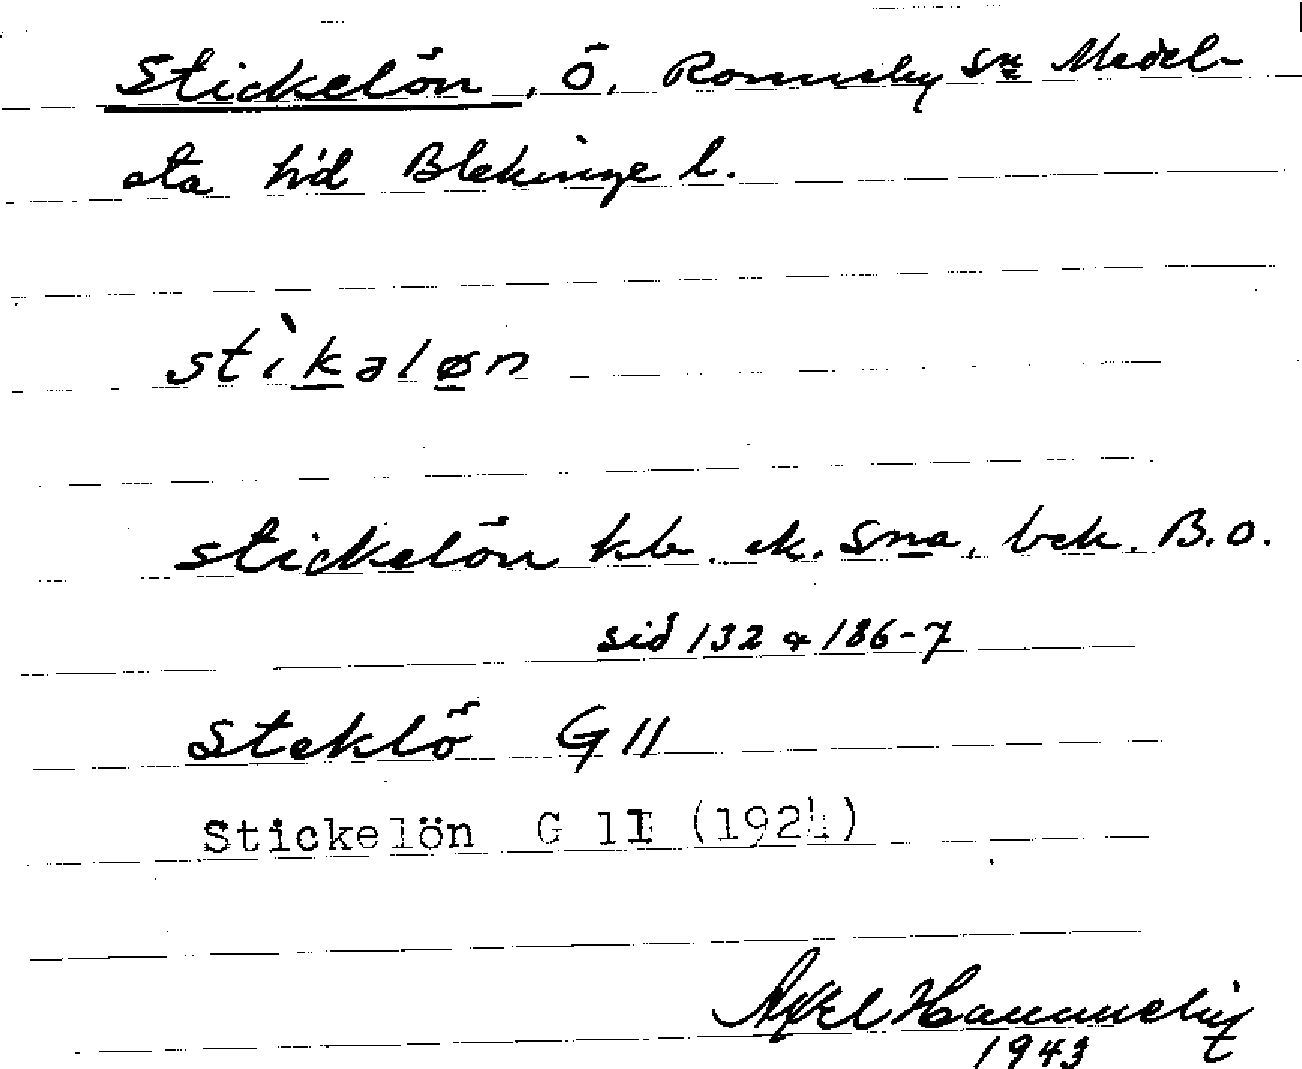 Stickelön, Ö, Ronneby sn Medel-
sta hd Blekinge l.
stìkaløn
stickelön kb. ek. Sma, bek. B.O.
sid 132 & 186-7
Steklö G 11
Stickelön G 11 (1924)
Axel Hammelig
1943